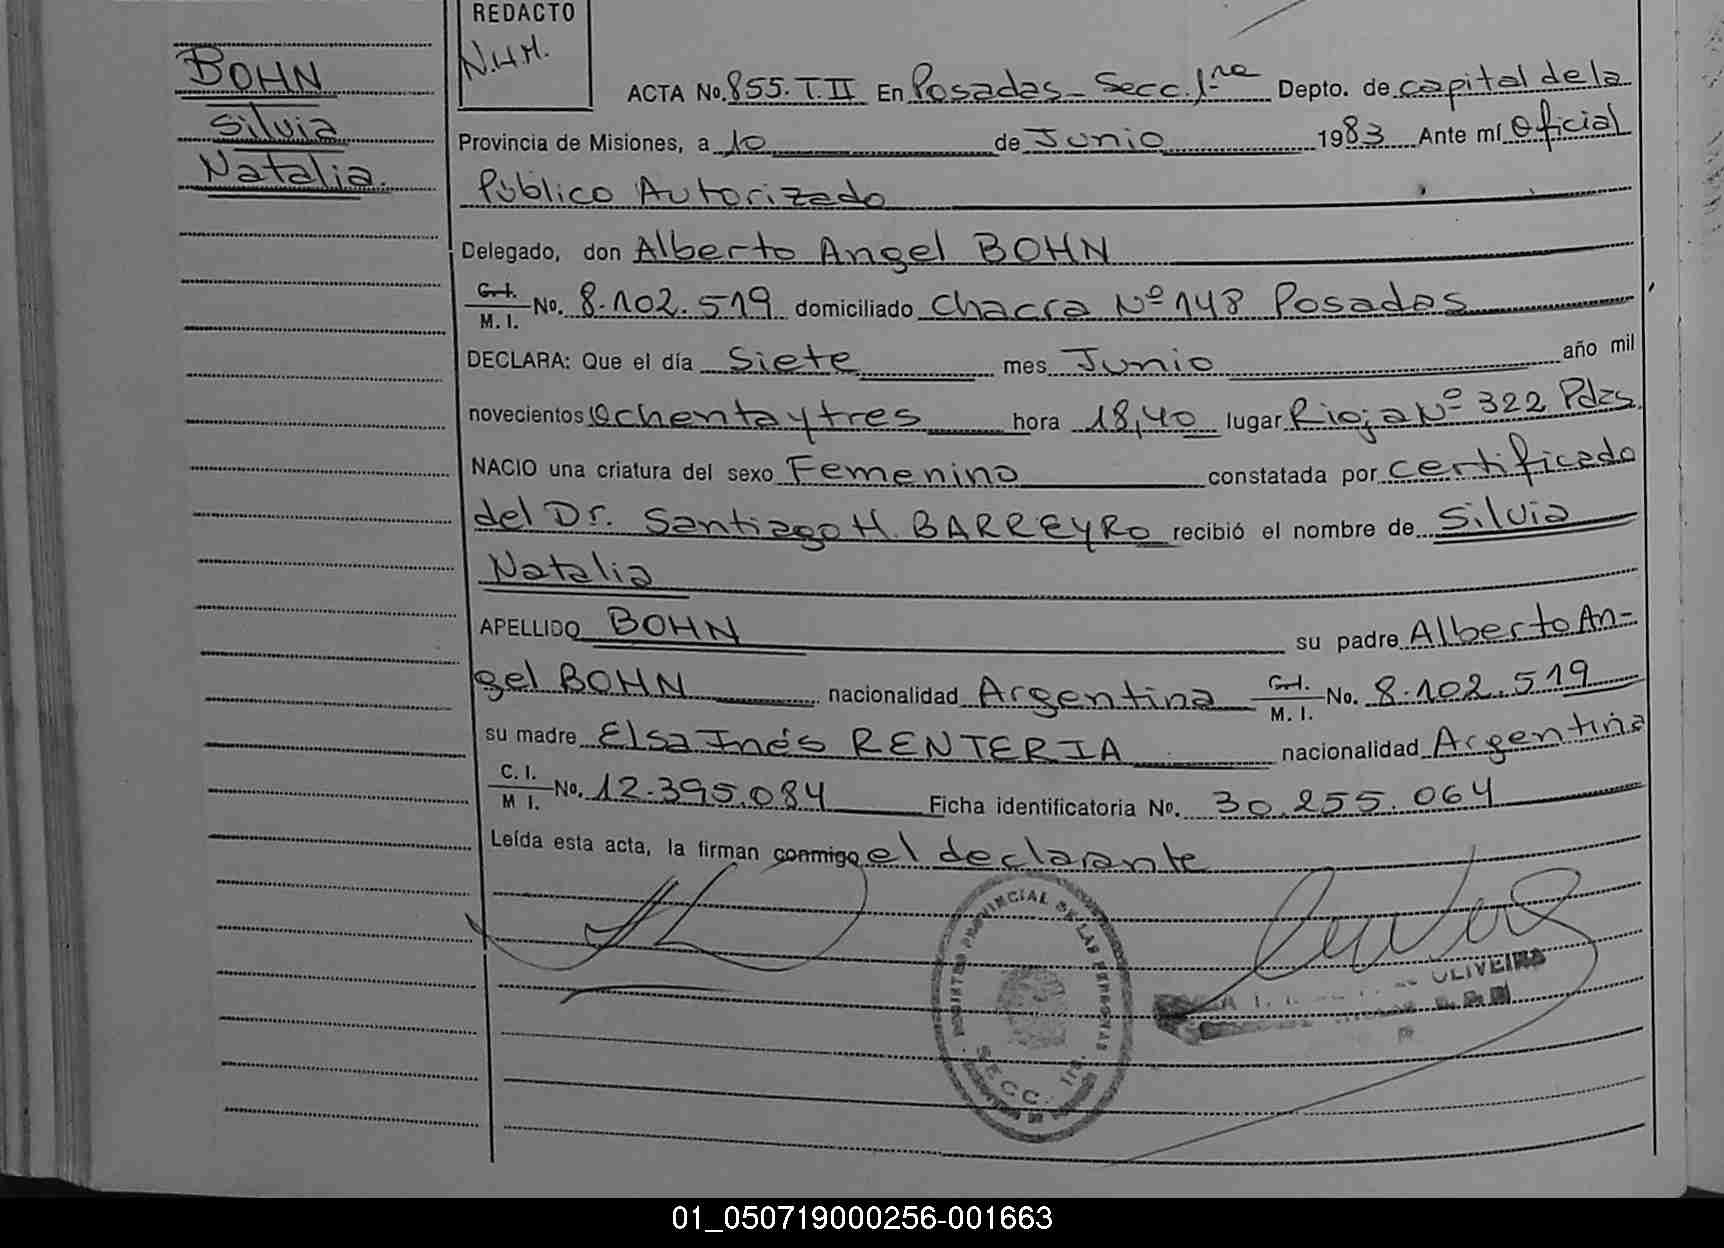 REDACTO
N.H.M.
BOHN
Silvia
Natalia.
ACTA No. 855. T. II En Posadas - Secc. 1ra Depto. de capital de la
Provincia de Misiones, a 10 de Junio 1983 Ante mí Oficial
Público Autorizado
Delegado, don Alberto Angel BOHN
C. I. / M. I. No. 8.102.519 domiciliado Chacra Nº 148 Posadas
DECLARA: Que el día Siete mes Junio año mil
novecientos Ochenta y tres hora 18,40 lugar Rioja Nº 322 Pdas.
NACIO una criatura del sexo Femenino constatada por certificado
del Dr. Santiago H. BARREYRO recibió el nombre de Silvia
Natalia
APELLIDO BOHN su padre Alberto An-
gel BOHN nacionalidad Argentina C. I. / M. I. No. 8.102.519
su madre Elsa Inés RENTERIA nacionalidad Argentina
C. I. / M I. No. 12.395.084 Ficha identificatoria No. 30.255.064
Leída esta acta, la firman conmigo el declarante
PROVINCIAL DE LAS PERSONAS
SECC. 1ra
OLIVEIRA
01_050719000256-001663